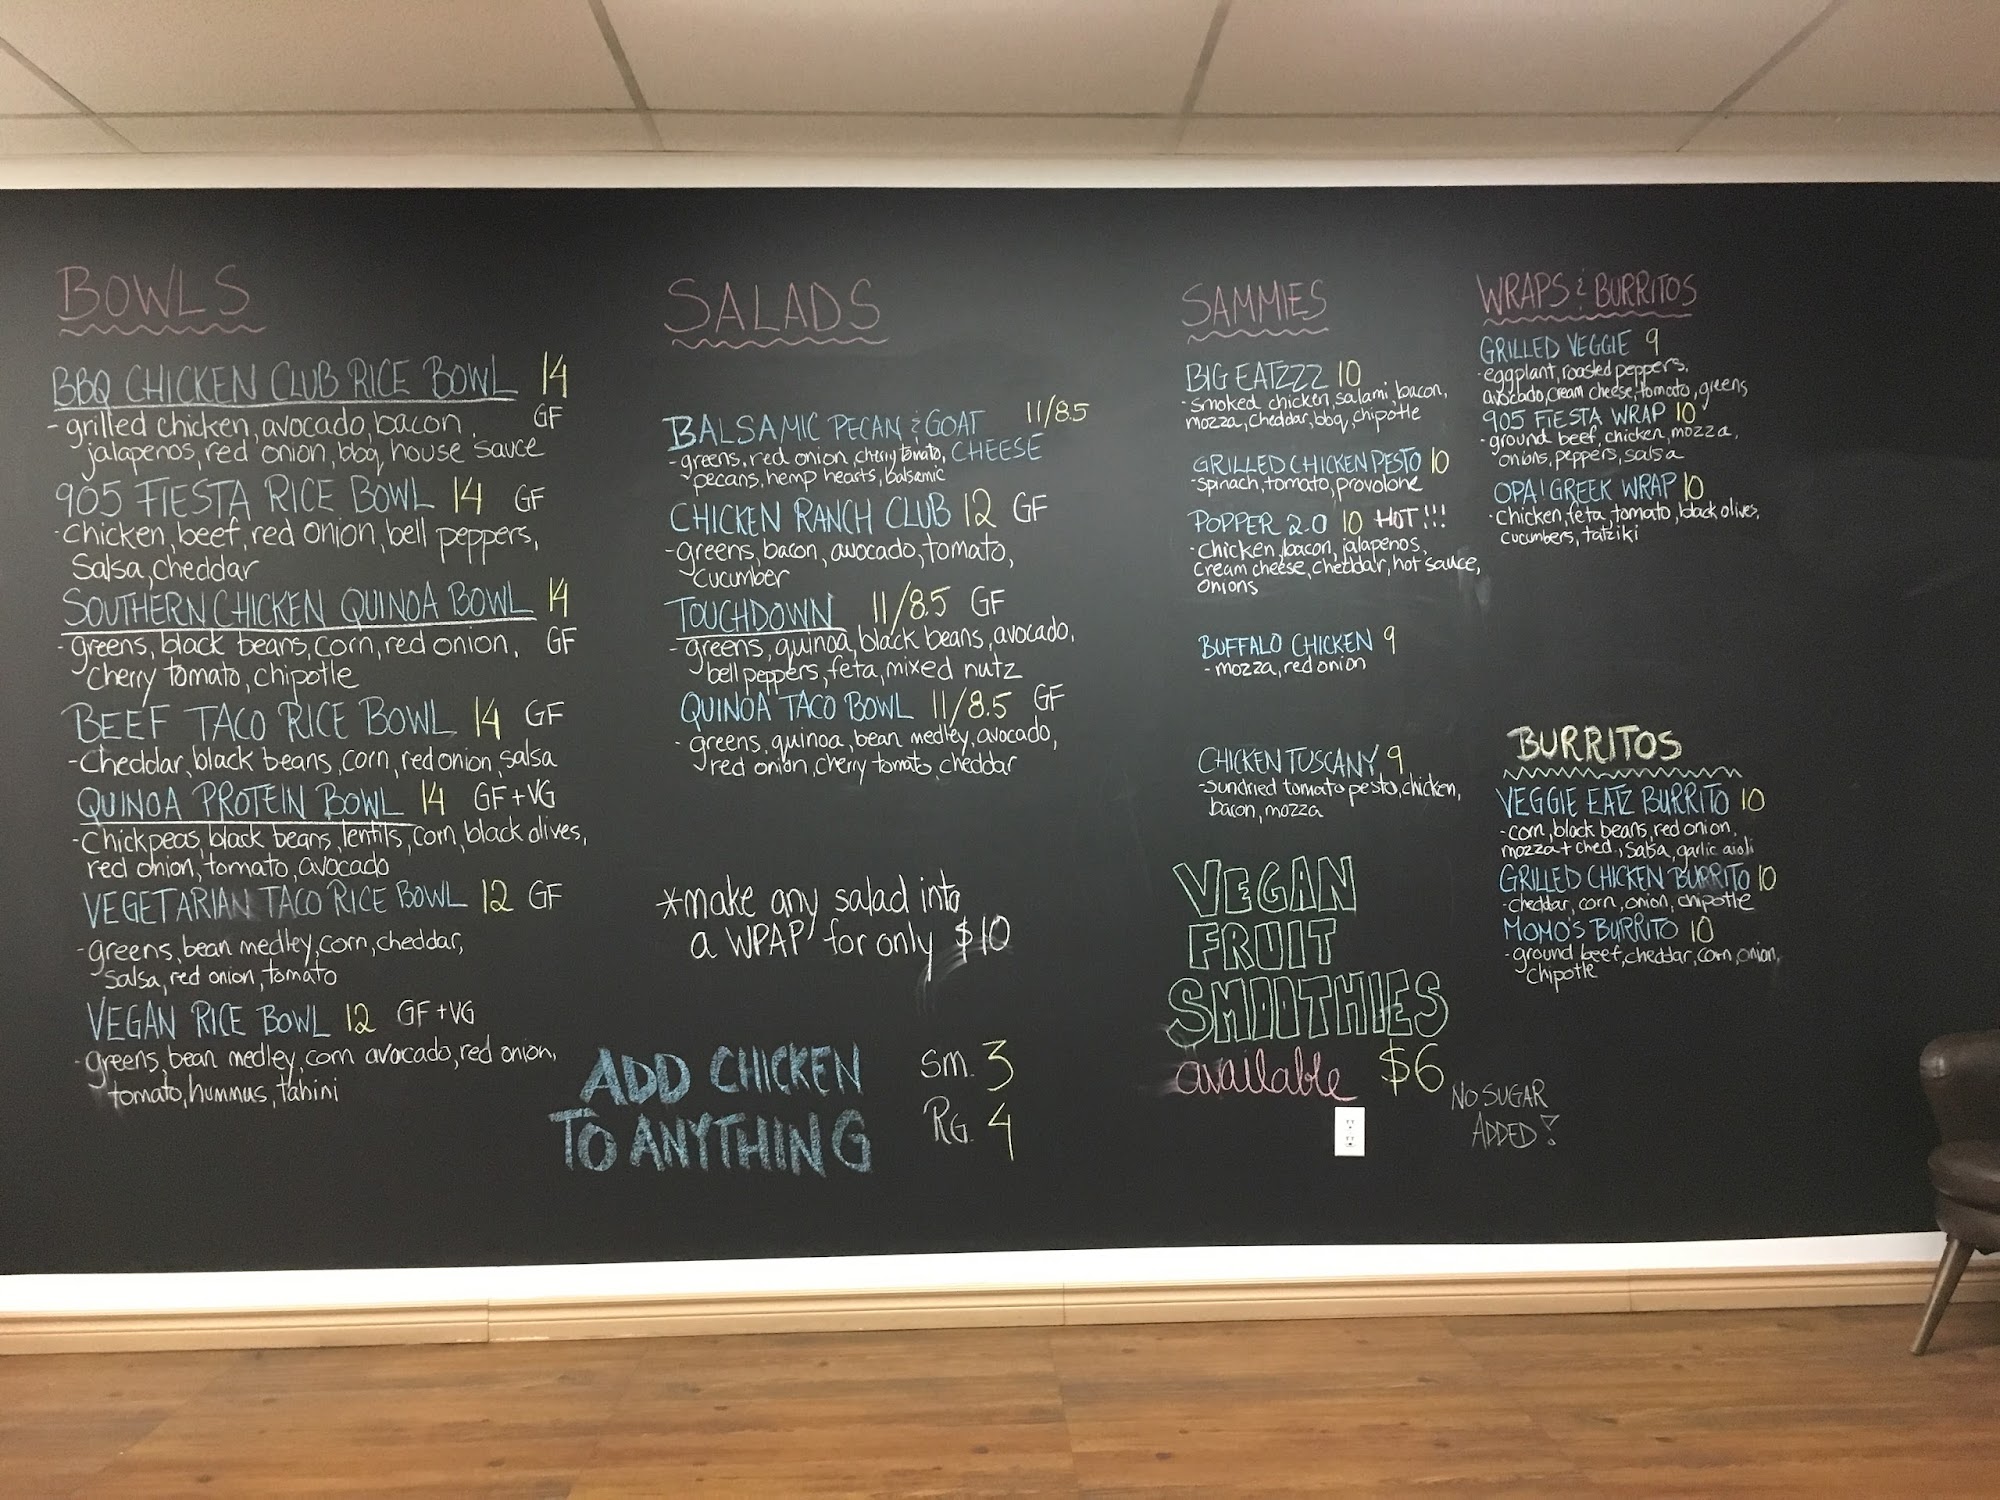 BOWLS
BBQ CHICKEN CLUB RICE BOWL 14
- grilled chicken, avocado, bacon, GF
jalapenos, red onion, bbq, house sauce
905 FIESTA RICE BOWL 14 GF
- chicken, beef, red onion, bell peppers,
Salsa, cheddar
SOUTHERN CHICKEN QUINOA BOWL 14
- greens, black beans, corn, red onion, GF
cherry tomato, chipotle
BEEF TACO RICE BOWL 14 GF
- cheddar, black beans, corn, red onion, salsa
QUINOA PROTEIN BOWL 14 GF + VG
- Chickpeas, black beans, lentils, corn, black olives,
red onion, tomato, avocado
VEGETARIAN TACO RICE BOWL 12 GF
- greens, bean medley, corn, cheddar,
salsa, red onion, tomato
VEGAN RICE BOWL 12 GF + VG
- greens, bean medley, corn avocado, red onion,
tomato, hummus, tahini
SALADS
BALSAMIC PECAN & GOAT 11/8.5
CHEESE
- greens, red onion, cherry tomato,
pecans, hemp hearts, balsamic
CHICKEN RANCH CLUB 12 GF
- greens, bacon, avocado, tomato,
cucumber
TOUCHDOWN 11/8.5 GF
- greens, quinoa, black beans, avocado,
bell peppers, feta, mixed nutz
QUINOA TACO BOWL 11/8.5 GF
- greens, quinoa, bean medley, avocado,
red onion, cherry tomato, cheddar
*make any salad into
a WPAP for only $10
ADD CHICKEN
TO ANYTHING
Sm. 3
RG. 4
SAMMIES
BIG EATZZZ 10
- smoked chicken, salami, bacon,
mozza, cheddar, bbq, chipotle
GRILLED CHICKEN PESTO 10
- spinach, tomato, provolone
POPPER 2.0 10 HOT!!!
- chicken, bacon, jalapenos,
cream cheese, cheddar, hot sauce,
onions
BUFFALO CHICKEN 9
- mozza, red onion
CHICKEN TUSCANY 9
- sundried tomato pesto, chicken,
bacon, mozza
VEGAN
FRUIT
SMOOTHIES
available $6
NO SUGAR
ADDED!
WRAPS & BURRITOS
GRILLED VEGGIE 9
- eggplant, roasted peppers,
avocado, cream cheese, tomato, greens
905 FIESTA WRAP 10
- ground beef, chicken, mozza,
onions, peppers, salsa
OPA! GREEK WRAP 10
- chicken, feta, tomato, black olives,
cucumbers, tatziki
BURRITOS
VEGGIE EATZ BURRITO 10
- corn, black beans, red onion,
mozza + ched., salsa, garlic aioli
GRILLED CHICKEN BURRITO 10
- cheddar, corn, onion, chipotle
MOMO'S BURRITO 10
- ground beef, cheddar, corn, onion,
chipotle